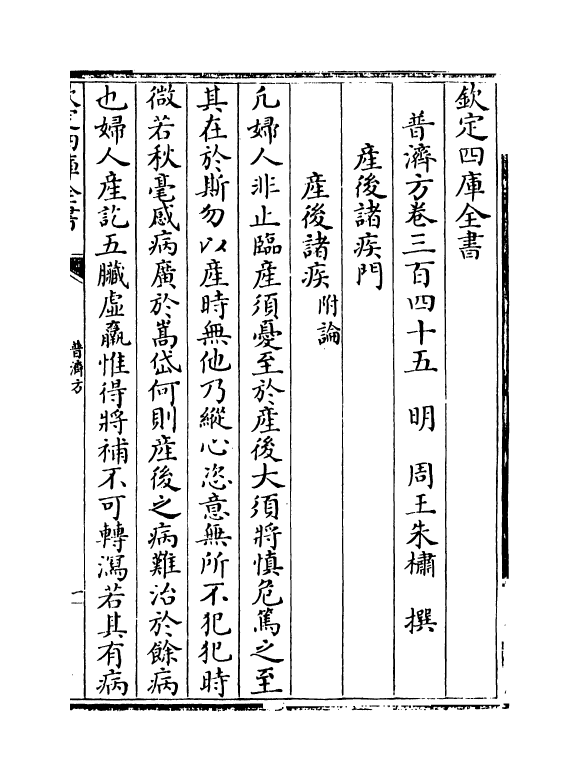 欽定四庫全書
普濟方卷三百四十五　明　周王朱橚　撰
產後諸疾門
產後諸疾附論
凡婦人非止臨產須憂至於產後大須將慎危篤之至
其在於斯勿以產時無他乃縱心恣意無所不犯犯時
微若秋毫感病廣於嵩岱何則產後之病難治於餘病
也婦人產訖五臟虛羸惟得將補不可轉瀉若其有病
欽定四庫全書
普濟方
一